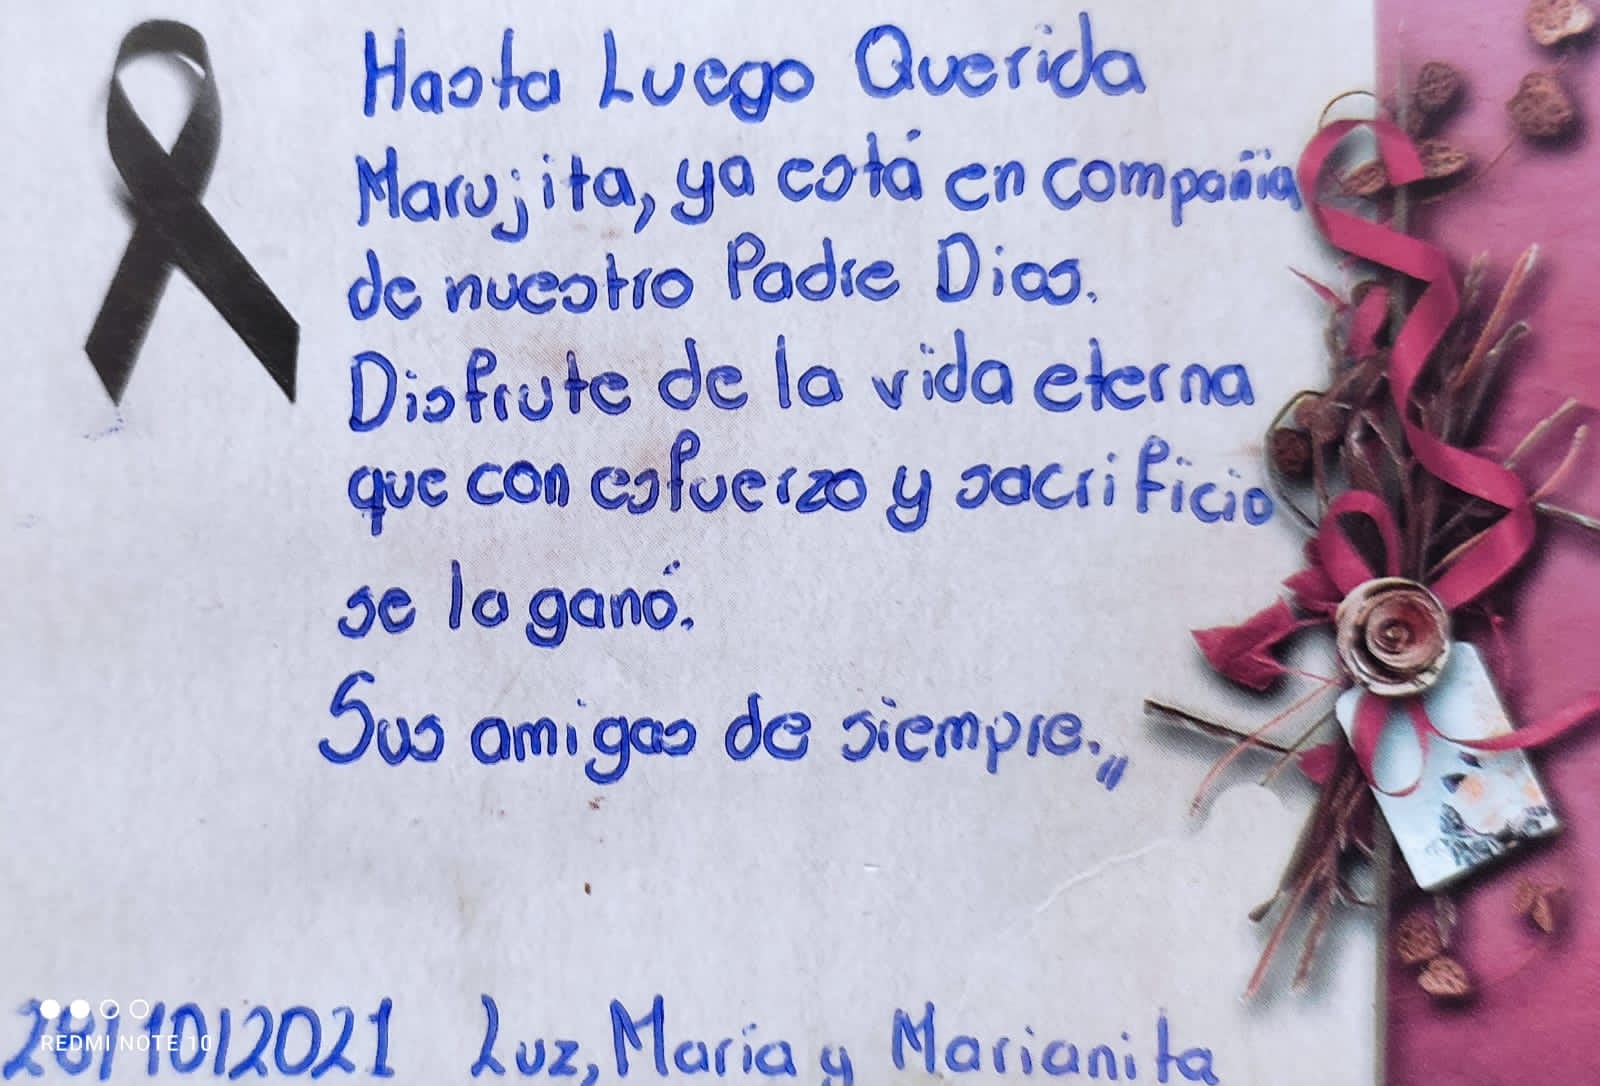 Hasta Luego Querida
Marujita, ya está en compañia
de nuestro Padre Dios.
Disfrute de la vida eterna
que con esfuerzo y sacrificio
se la ganó.
Sus amigas de siempre.,,
28/10/2021 Luz, María y Marianita
REDMI NOTE 10